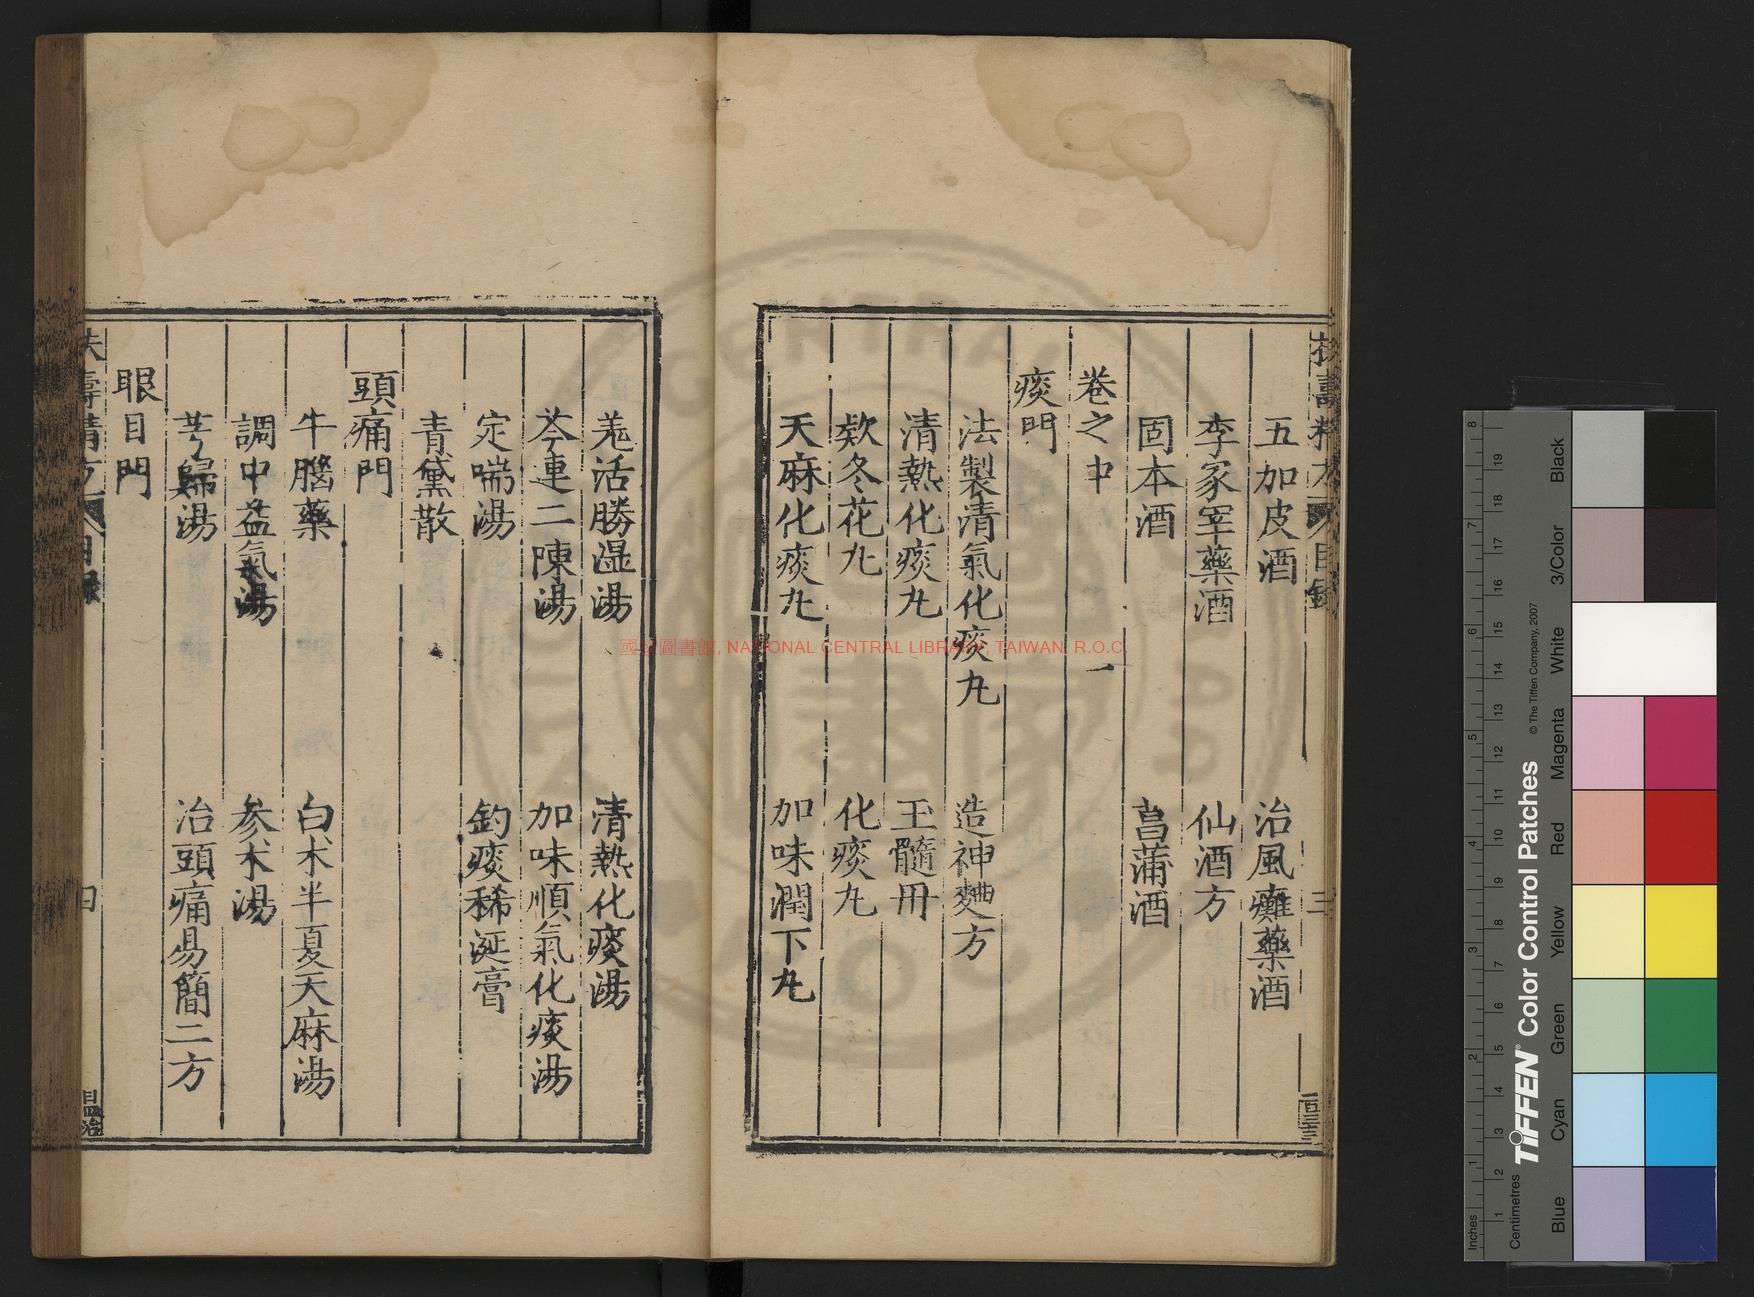 五加皮酒　治風癱藥酒
李冢宰藥酒　仙酒方
固本酒　菖蒲酒
卷之中　一
痰門
法製清氣化痰丸　造神麯方
清熱化痰丸　玉髓丹
欵冬花丸　化痰丸
天麻化痰丸　加味潤下丸
羗活勝濕湯　清熱化痰湯
芩連二陳湯　加味順氣化痰湯
定喘湯　釣痰稀涎膏
青黛散
頭痛門
牛腦藥　白术半夏天麻湯
調中益氣湯　參术湯
芎歸湯　治頭痛易簡二方
眼目門
扶壽精方　目錄
三
四
國家圖書館, NATIONAL CENTRAL LIBRARY, TAIWAN. R.O.C.
TIFFEN® Color Control Patches
© The Tiffen Company, 2007
Inches
Centimetres
Blue
Cyan
Green
Yellow
Red
Magenta
White
3/Color
Black